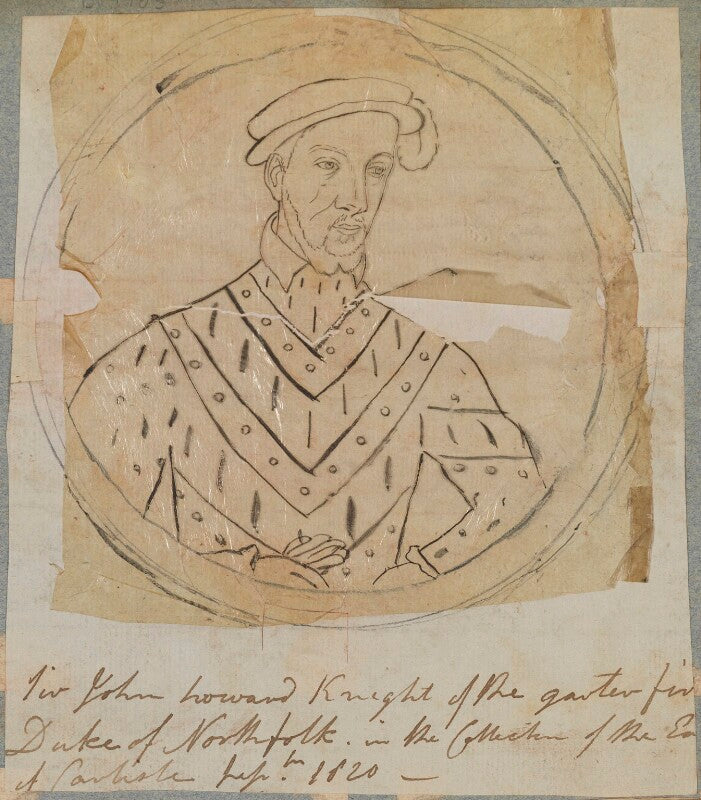 Sir John howard Knight of the garter fir
Duke of Norfolk. in the Collection of the Ea
of Carlisle Sep.tm 1820 —